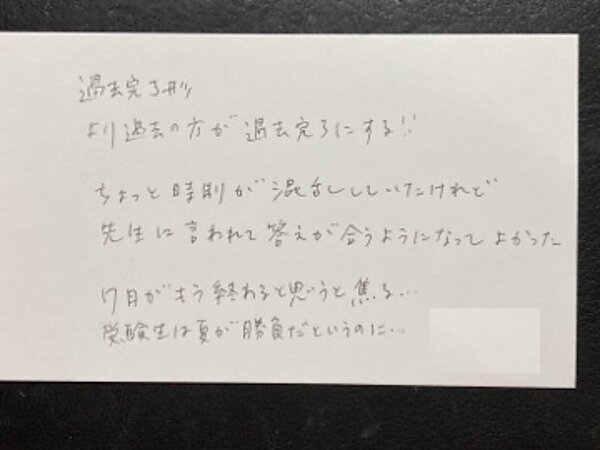 過去完了形
より過去の方が過去完了にする!!
ちょっと時制が混乱していたけれど
先生に言われて答えが合うようになってよかった
7月がもう終わると思うと焦る...
受験生は夏が勝負だというのに...